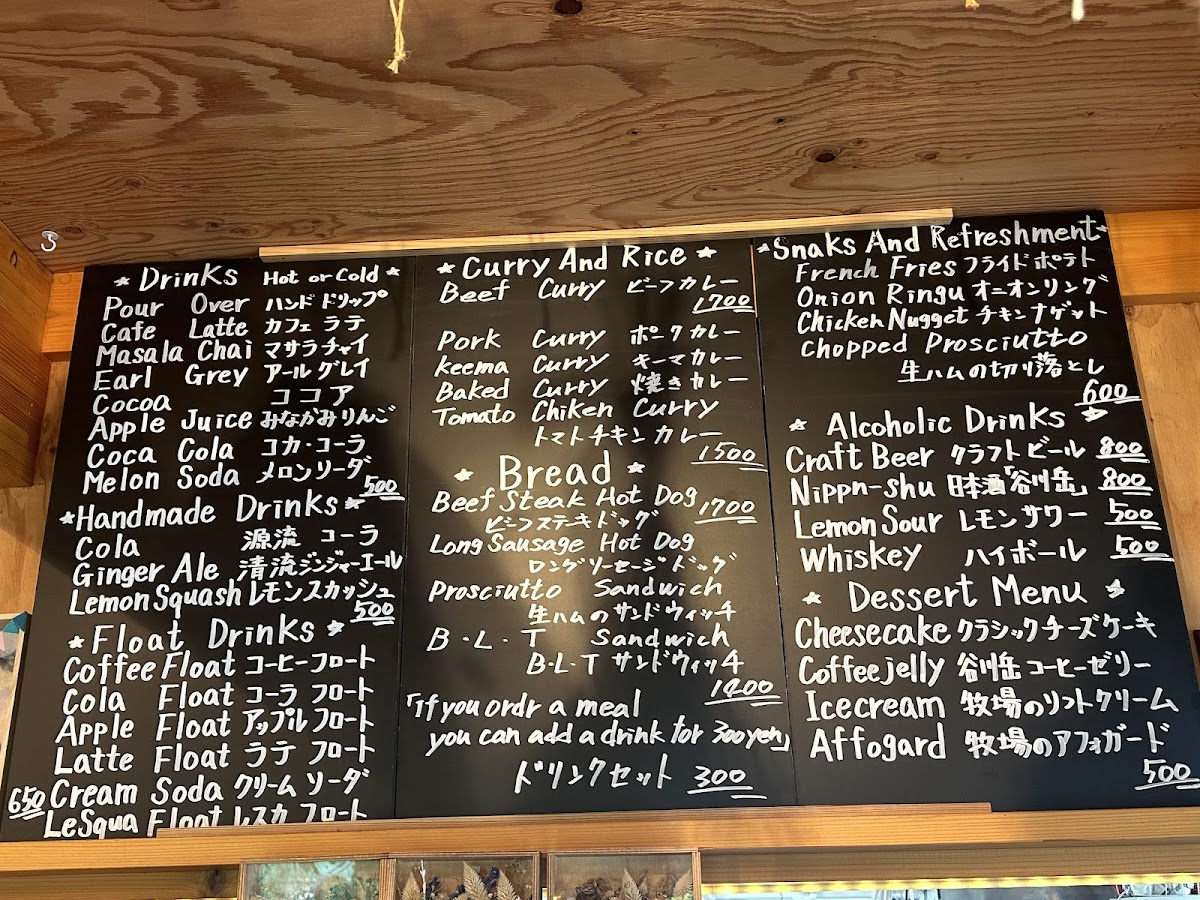 * Drinks Hot or Cold *
Pour Over ハンド ドリップ
Cafe Latte カフェ ラテ
Masala Chai マサラ チャイ
Earl Grey アール グレイ
Cocoa ココア
Apple Juice みなかみりんご
Coca Cola コカ・コーラ
Melon Soda メロンソーダ
500
*Handmade Drinks*
Cola 源流 コーラ
Ginger Ale 清流ジンジャーエール
Lemon Squash レモンスカッシュ
500
* Float Drinks *
Coffee Float コーヒーフロート
Cola Float コーラ フロート
Apple Float アップル フロート
Latte Float ラテ フロート
650 Cream Soda クリーム ソーダ
LeSqua Float レスカ フロート
* Curry And Rice *
Beef Curry ビーフカレー
1700
Pork Curry ポークカレー
Keema Curry キーマカレー
Baked Curry 焼きカレー
Tomato Chiken Curry
トマトチキンカレー
1500
* Bread *
Beef Steak Hot Dog 1700
ビーフステーキドッグ
Long Sausage Hot Dog
ロングソーセージドッグ
Prosciutto Sandwich
生ハムのサンドウィッチ
B・L・T Sandwich
B・L・T サンドウィッチ
1200
「If you ordr a meal
you can add a drink for 300yen」
ドリンクセット 300
*Snaks And Refreshment*
French Fries フライドポテト
Onion Ringu オニオンリング
Chicken Nugget チキンナゲット
Chopped Prosciutto
生ハムの切り落とし
600
* Alcoholic Drinks *
Craft Beer クラフトビール 800
Nippn-shu 日本酒「谷川岳」 800
Lemon Sour レモンサワー 500
Whiskey ハイボール 500
* Dessert Menu *
Cheesecake クラシックチーズケーキ
Coffeejelly 谷川岳コーヒーゼリー
Icecream 牧場のソフトクリーム
Affogard 牧場のアフォガード
500